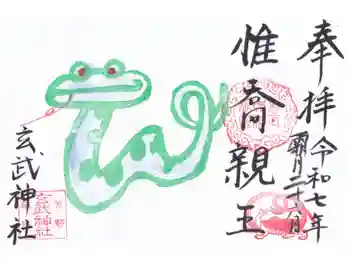 奉拝
令和七年
霜月二十八日
惟喬親王
玄武神社
玄武神社